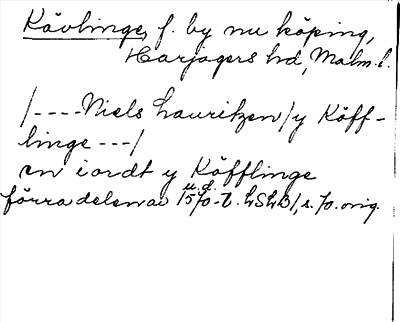 Kävlinge, f. by nu köping,
Harjagers hd, Malm. l.
/----Niels Lauritzen/y Köff-
linge ---/
en iordt y Köfflinge
u.d.
förra delen av 1570-t. LSLB1, s. 70. orig.